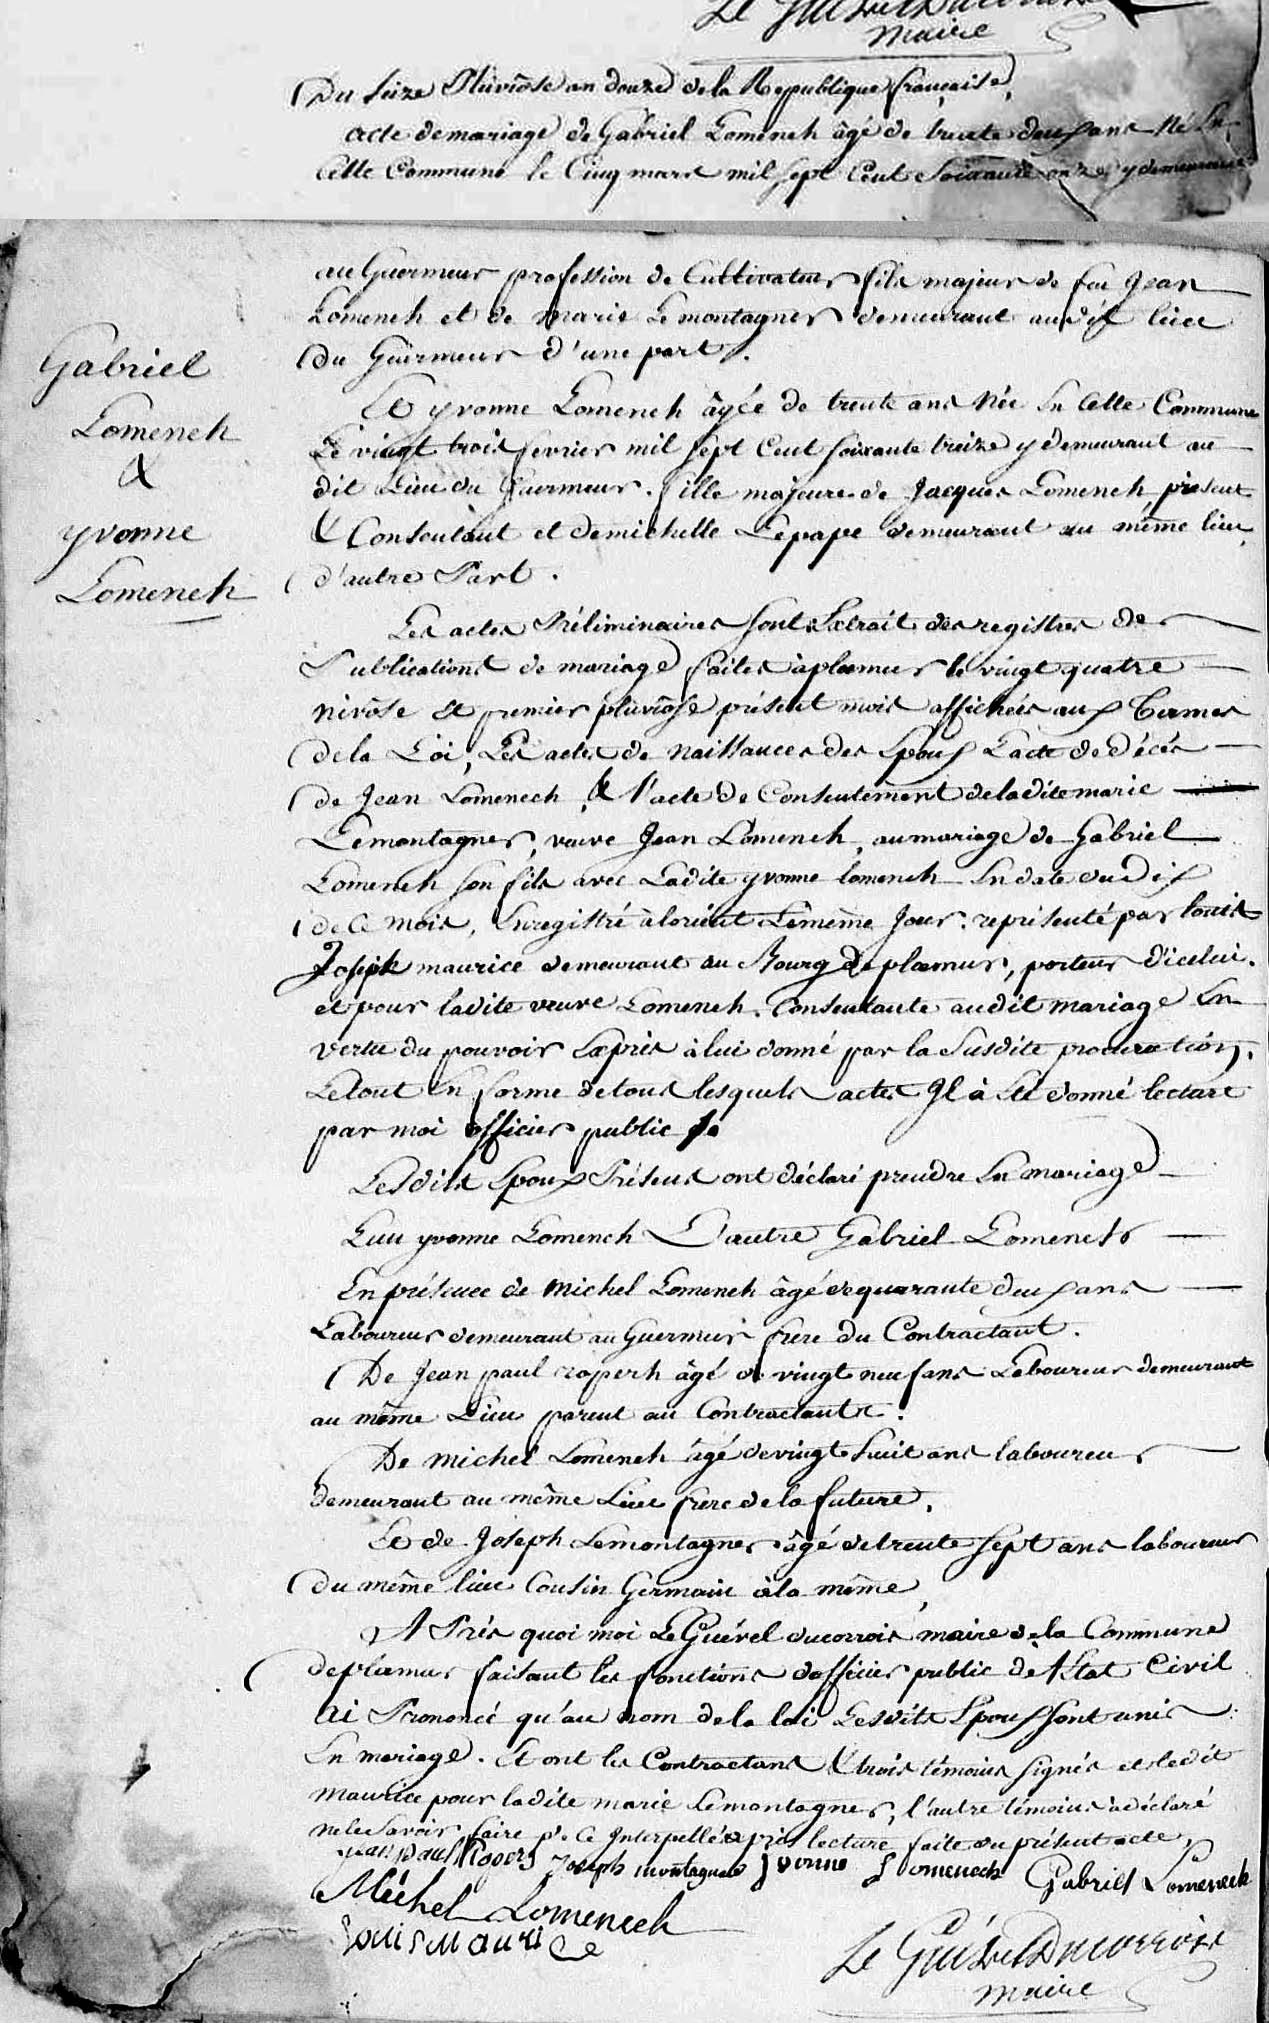 Le Guével Ducorrois
maire
Du Seize Pluviôse an douze de la Republique française,
acte de mariage de Gabriel Lomench âgé de trente deux ans Né En
Cette Commune le Cinq mars mil sept Cent Soixante onze, y demeurant
au Guermeur profession de Cultivateur fils majeur de feu Jean
Lomench et de marie Le montagner demeurant audit lieu
du Guermeur d'une part.
Gabriel
Lomench
&
yvonne
Lomench
Et yvonne Lomench âgée de trente ans Née En Cette Commune
Le vingt trois fevrier mil sept Cent soixante treize y demeurant au
dit Lieu du Guermeur. fille majeure de Jacques Lomench, présent
& Consentant et de michelle Lepape demeurant au même lieu,
d'autre Part.
Les actes Préliminaires sont Extrait des registres de
Publications de mariage faites à ploemeur le vingt quatre
nivôse et premier pluviôse présent mois affichées aux termes
de la Loi, Les actes de naissances des Epoux L'acte de décès
de Jean Lomenech, & l'acte de Consentement de ladite marie
Lemontagner, veuve Jean Lomench, au mariage de Gabriel
Lomench son fils avec Ladite yvonne lomench En date du Dix
de Ce mois, Enregistré à lorient Lemême Jour. représenté par louis
Joseph maurice demeurant au Bourg de ploemeur, porteur d'icelui.
et pour ladite veuve Lomench. Consentante audit mariage En
vertu du pouvoir Exprès à lui donné par la Susdite procuration.
Le tout En forme de tous lesquels actes Il à Eté donné lecture
par moi officier public
Lesdits Epoux Présens ont déclaré prendre En mariage
L'un yvonne Lomench L'autre Gabriel Lomench
En présence de Michel Lomench âgé de quarante deux ans
Laboureur demeurant au Guermeur frere du Contractant.
De Jean paul roperh âgé de vingt neuf ans Laboureur demeurant
au même Lieu parent au Contractant.
De michel Lomench âgé de vingt huit ans laboureur
demeurant au même Lieu frere de la future.
Et de Joseph Lemontagner âgé de trente sept ans laboureur
du même lieu Cousin Germain à la même,
A Près quoi moi Le Guével ducorrois maire de la Commune
de ploemeur faisant les fonctions d'officier public de l'Etat Civil
ai Prononcé qu'au nom de la loi Lesdits Epoux sont unis
En mariage. Et ont les Contractans & trois témoins signés et ledit
Maurice pour ladite marie Lemontagner, l'autre témoins à déclaré
ne le Savoir faire de Ce Interpellé après lecture faite du présent acte,
jean paul Ropers Joseph montagner Yvonne Lomenech Gabriel Lomenech
Michel Lomenech
Louis Maurice
Le Guével Ducorrois
maire